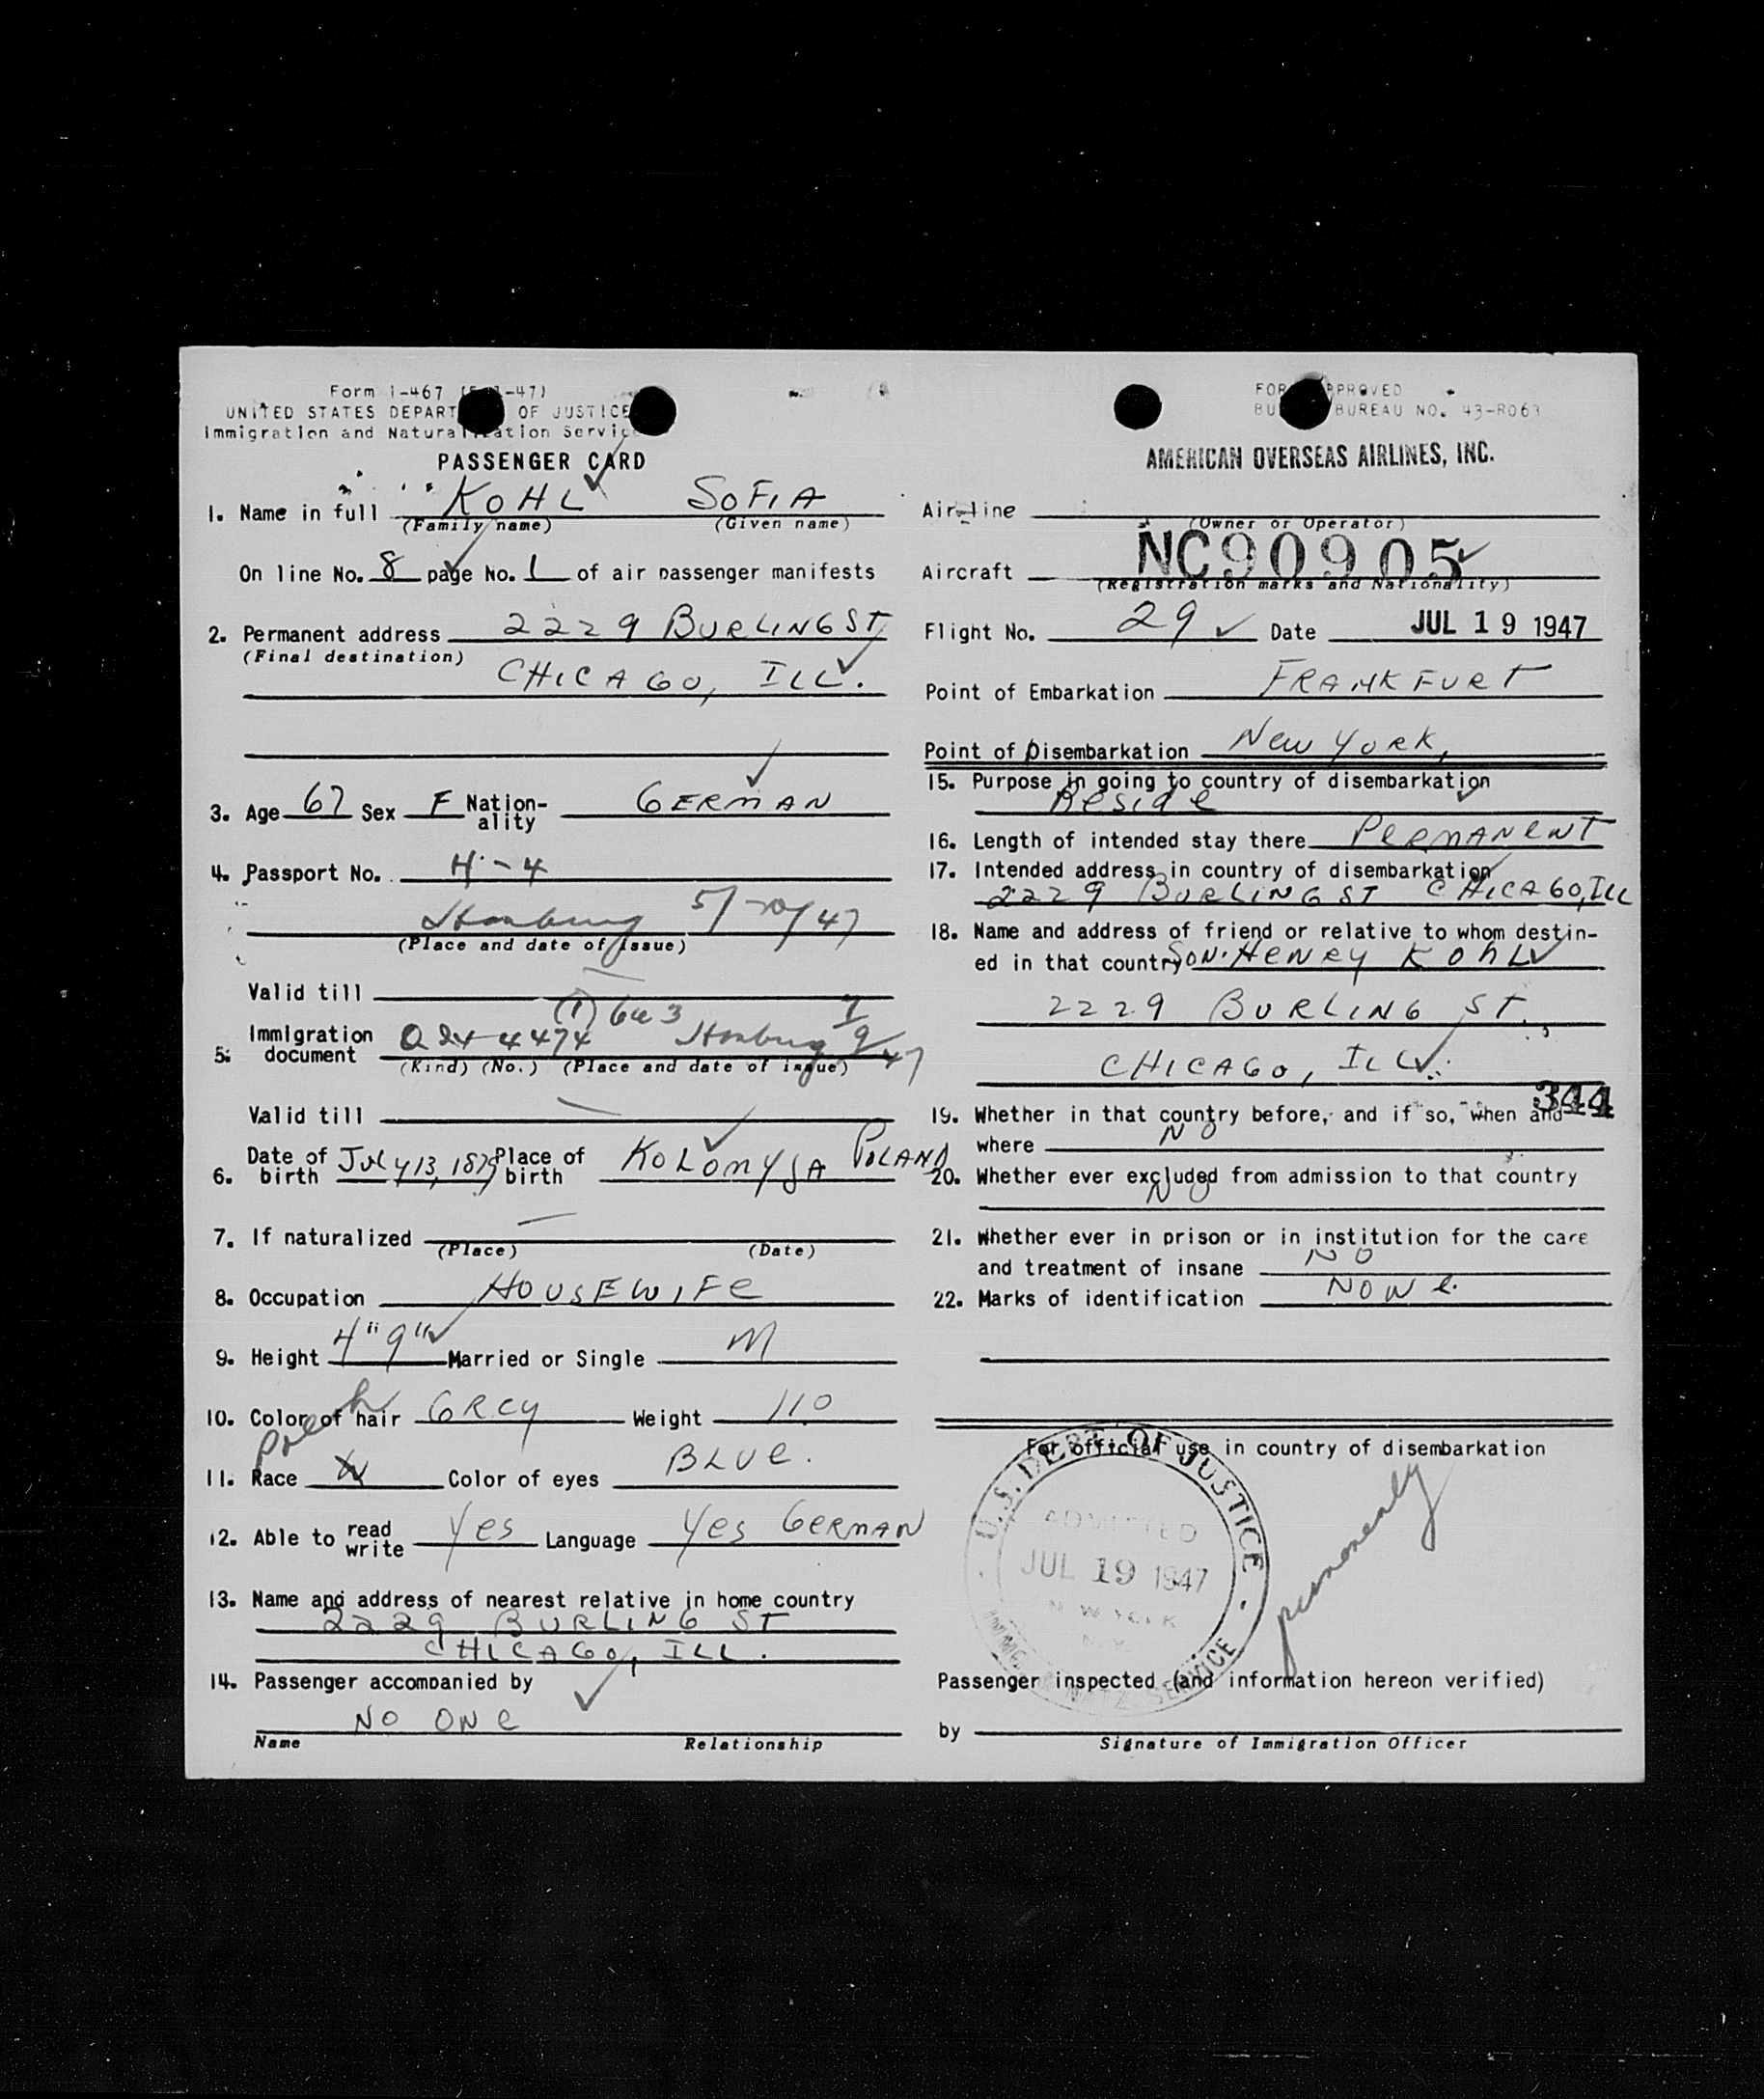 Form I-467 -47)
UNITED STATES DEPART OF JUSTICE
Immigration and Naturalization Servic
PASSENGER CARD
1. Name in full KOHL SOFIA
(Family name) (Given name)
On line No. 8 page No. 1 of air passenger manifests
2. Permanent address 2229 BURLING ST
(Final destination)
CHICAGO, ILL.
3. Age 67 Sex F Nation-ality GERMAN
4. Passport No. H-4
Hamburg 5/20/47
(Place and date of issue)
Valid till —
(1) 643
5. Immigration document Q 24 4474 Hamburg 7/9/47
(Kind) (No.) (Place and date of issue)
Valid till —
6. Date of birth July 13, 1879 Place of birth KOLOMYJA POLAND
7. If naturalized —
(Place) (Date)
8. Occupation HOUSEWIFE
9. Height 4"9" Married or Single M
10. Color of hair GREY Weight 110
Polish
11. Race W Color of eyes BLUE.
12. Able to read write Yes Language Yes GERMAN
13. Name and address of nearest relative in home country
2229 BURLING ST
CHICAGO, ILL.
14. Passenger accompanied by
NO ONE
Name Relationship
FOR APPROVED
BU BUREAU NO. 43-R063
AMERICAN OVERSEAS AIRLINES, INC.
Air-line
(Owner or Operator)
Aircraft NC90905
(Registration marks and Nationality)
Flight No. 29 Date JUL 19 1947
Point of Embarkation FRANKFURT
Point of Disembarkation New York,
15. Purpose in going to country of disembarkation
Reside
16. Length of intended stay there PERMANENT
17. Intended address in country of disembarkation
2229 BURLING ST CHICAGO, ILL
18. Name and address of friend or relative to whom destin-
ed in that country SON. HENRY KOHL
2229 BURLING ST.
CHICAGO, ILL.
344
19. Whether in that country before, and if so, when and
where NO
20. Whether ever excluded from admission to that country
NO
21. Whether ever in prison or in institution for the care
and treatment of insane NO
22. Marks of identification NONE.
For official use in country of disembarkation
U.S. DEPT OF JUSTICE
ADMITTED
JUL 19 1947
NEW YORK
N.Y.
SERVICE
permanently
Passenger inspected (and information hereon verified)
by
Signature of Immigration Officer